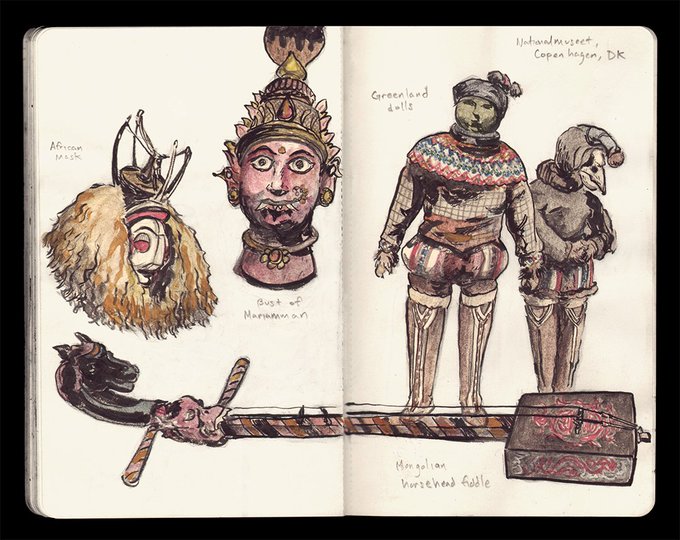 African
Mask
Bust of
Mariamman
Nationalmuseet,
Copenhagen, DK
Greenland
dolls
Mongolian
horsehead fiddle